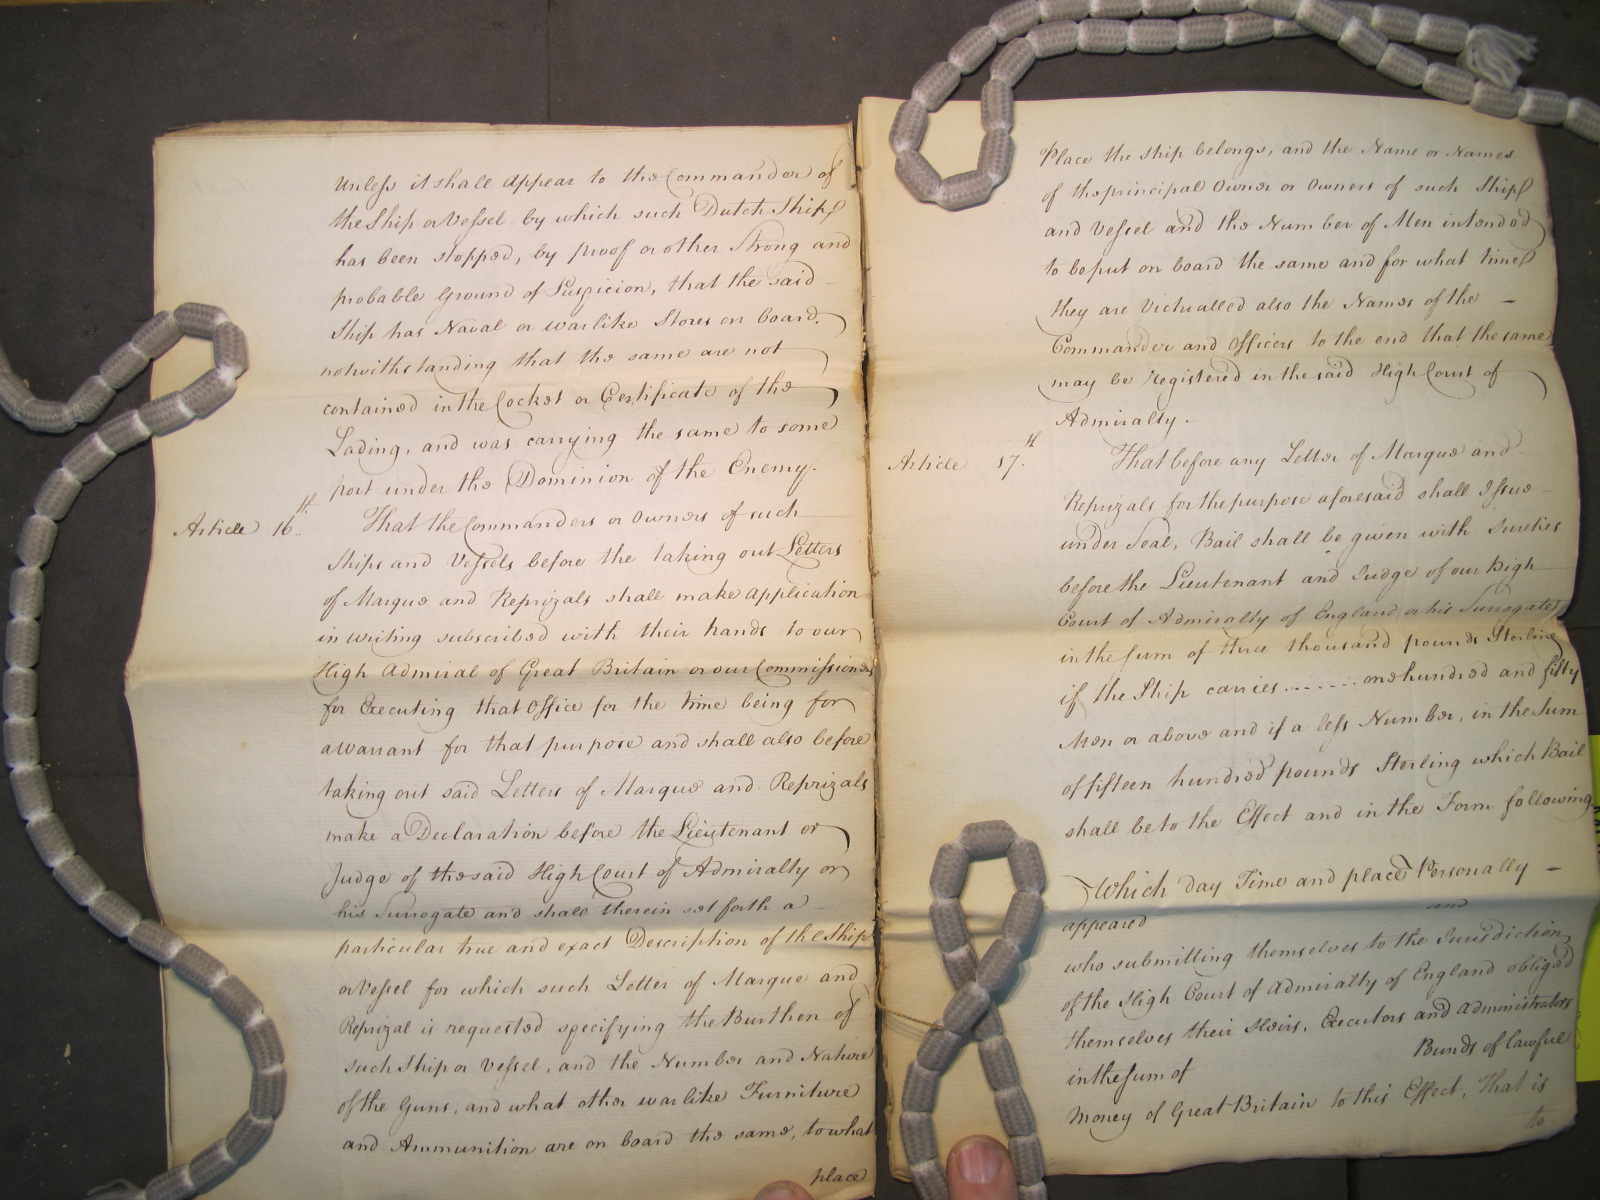 Unless it shall appear to the Commander of
the Ship or Vessel by which such Dutch Ship
has been stopped, by proof or other strong and
probable Ground of Suspicion, that the said
Ship has Naval or warlike Stores on board,
notwithstanding that the same are not
contained in the Cocket or Certificate of the
Lading, and was carrying the same to some
port under the Dominion of the Enemy.
Article 16th. That the Commanders or Owners of such
Ships and Vessels before the taking out Letters
of Marque and Reprizals shall make application
in writing subscribed with their hands to our
High Admiral of Great Britain or our Commissioners
for Executing that Office for the time being for
a Warrant for that purpose and shall also before
taking out said Letters of Marque and Reprizals
make a Declaration before the Lieutenant or
Judge of the said High Court of Admiralty or
his Surrogate and shall therein set forth a
particular true and exact Description of the Ship
or Vessel for which such Letter of Marque and
Reprizal is requested specifying the Burthen of
such Ship or Vessel, and the Number and Nature
of the Guns, and what other warlike Furniture
and Ammunition are on board the same, to what
place
Place the Ship belongs, and the Name or Names
of the principal Owner or Owners of such Ship
and Vessel and the Number of Men intended
to be put on board the same and for what time
they are Victualled also the Names of the
Commander and Officers to the end that the same
may be Registered in the said High Court of
Admiralty.
Article 17th. That before any Letter of Marque and
Reprizals for the purpose aforesaid shall Issue
under Seal, Bail shall be given with Sureties
before the Lieutenant and Judge of our High
Court of Admiralty of England or his Surrogate
in the Sum of three thousand pounds Sterling
if the Ship carries ....... one hundred and fifty
Men or above and if a less Number, in the Sum
of fifteen hundred pounds Sterling which Bail
shall be to the Effect and in the Form following
Which day Time and place Personally
appeared and
who submitting themselves to the Jurisdiction
of the High Court of Admiralty of England obliged
themselves their Heirs, Executors and Administrators
in the Sum of Punds of lawful
Money of Great Britain to this Effect, That is
to